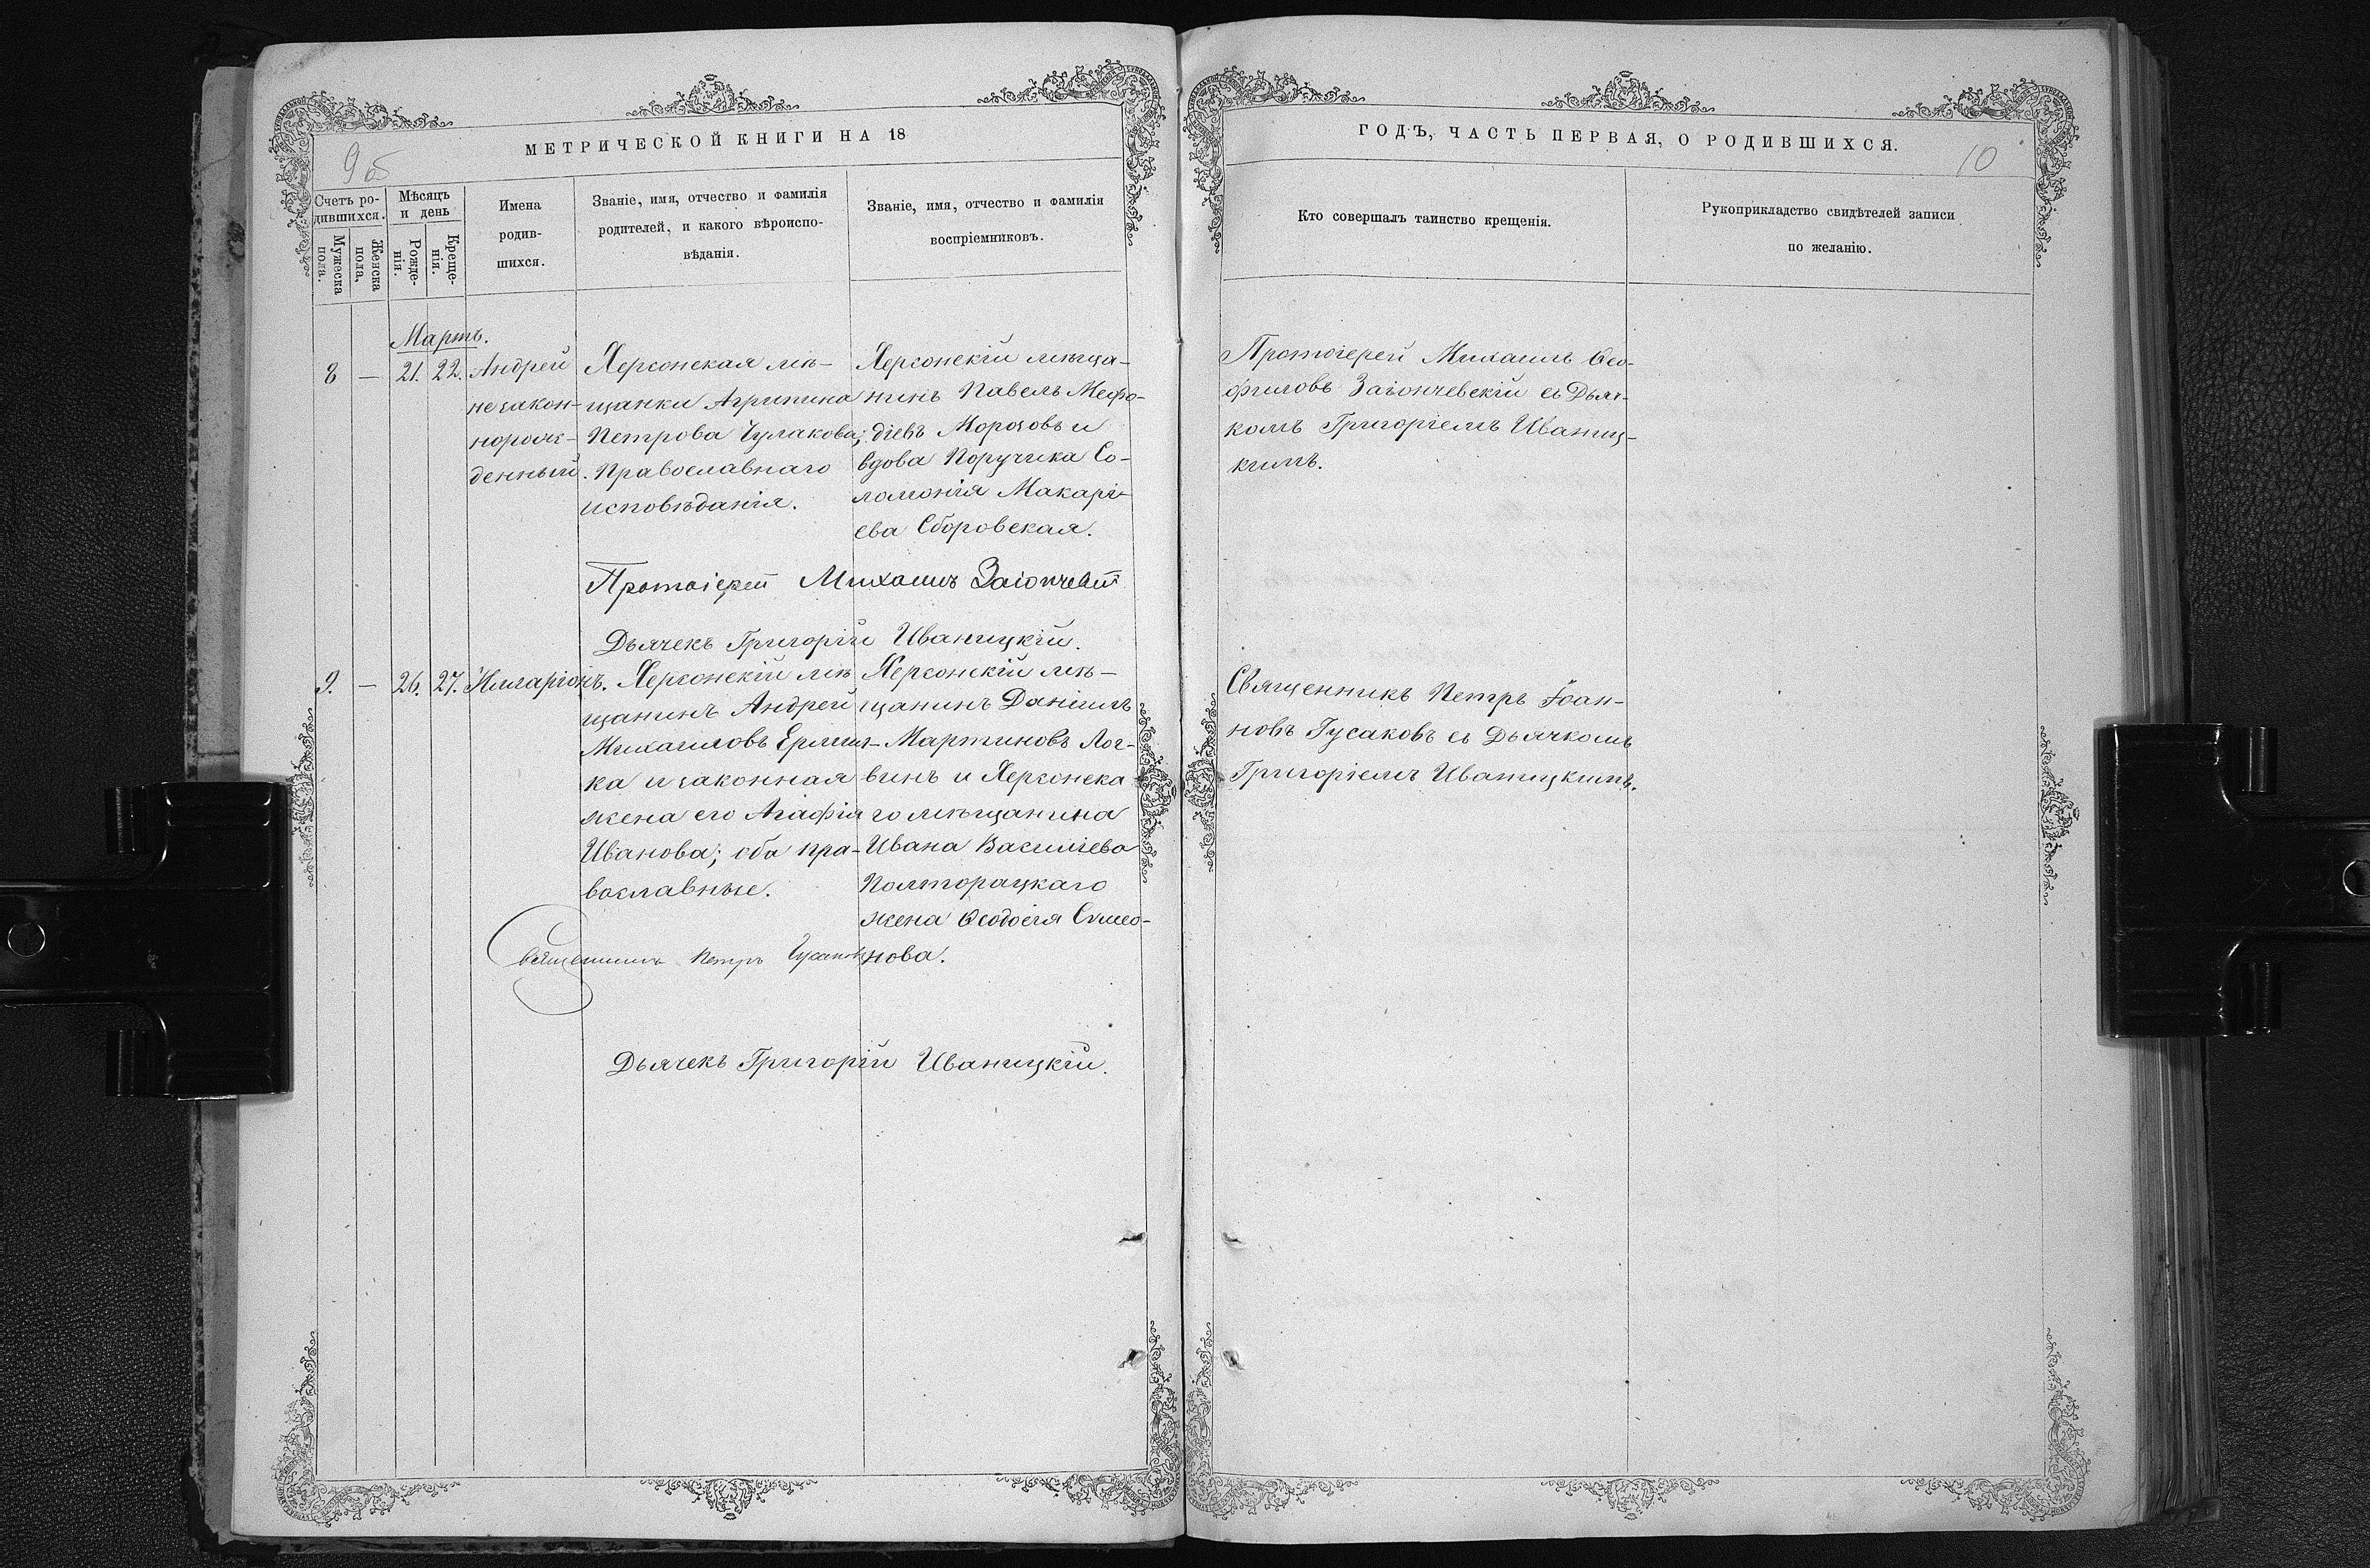 МЕТРИЧЕСКОЙ КНИГИ НА 18
9об
Счетъ ро-
дившихся.
Мужеска
пола.
Женска
пола,
Мѣсяцъ
и день
Рожде-
нія.
Креще-
нія.
Имена
родив-
шихся.
Званіе, имя, отчество и фамилія
родителей, и какого вѣроиспо-
вѣданія.
Званіе, имя, отчество и фамилія
воспріемниковъ.
Мартъ.
8 — 21. 22.
Андрей
незакон-
норож-
денный.
Херсонская мѣ-
щанка Агрипина
Петрова Чулакова;
Православнаго
исповѣданія.
Херсонскій мѣща-
нинъ Павелъ Мефо-
діевъ Морозовъ и
вдова Поручика Со-
ломонія Макарі-
ева Сборовская.
Протоіерей Михаилъ Заіончевскій
Дьячекъ Григорій Иваницкій.
9. — 26. 27.
Илларіонъ.
Херсонскій мѣ
щанинъ Андрей
Михаиловъ Ермил-
ка и законная
жена его Агафія
Иванова; оба пра-
вославные.
Херсонскій мѣ-
щанинъ Даніилъ
Мартиновъ Лог-
винъ и Херсонска
го мѣщанина
Ивана Василіева
Полторацкаго
жена Ѳеодосія Симео-
нова.
Священникъ Петръ Гусаковъ
Дьячекъ Григорій Иваницкій.
ГОДЪ, ЧАСТЬ ПЕРВАЯ, О РОДИВШИХСЯ.
10
Кто совершалъ таинство крещенія.
Рукоприкладство свидѣтелей записи
по желанію.
Протоіерей Михаилъ Ѳео-
филовъ Заіончевскій съ Дьяч-
комъ Григоріемъ Иваниц-
кимъ.
Священникъ Петръ Іоан-
новъ Гусаковъ съ Дьячкомъ
Григоріемъ Иваницкимъ.